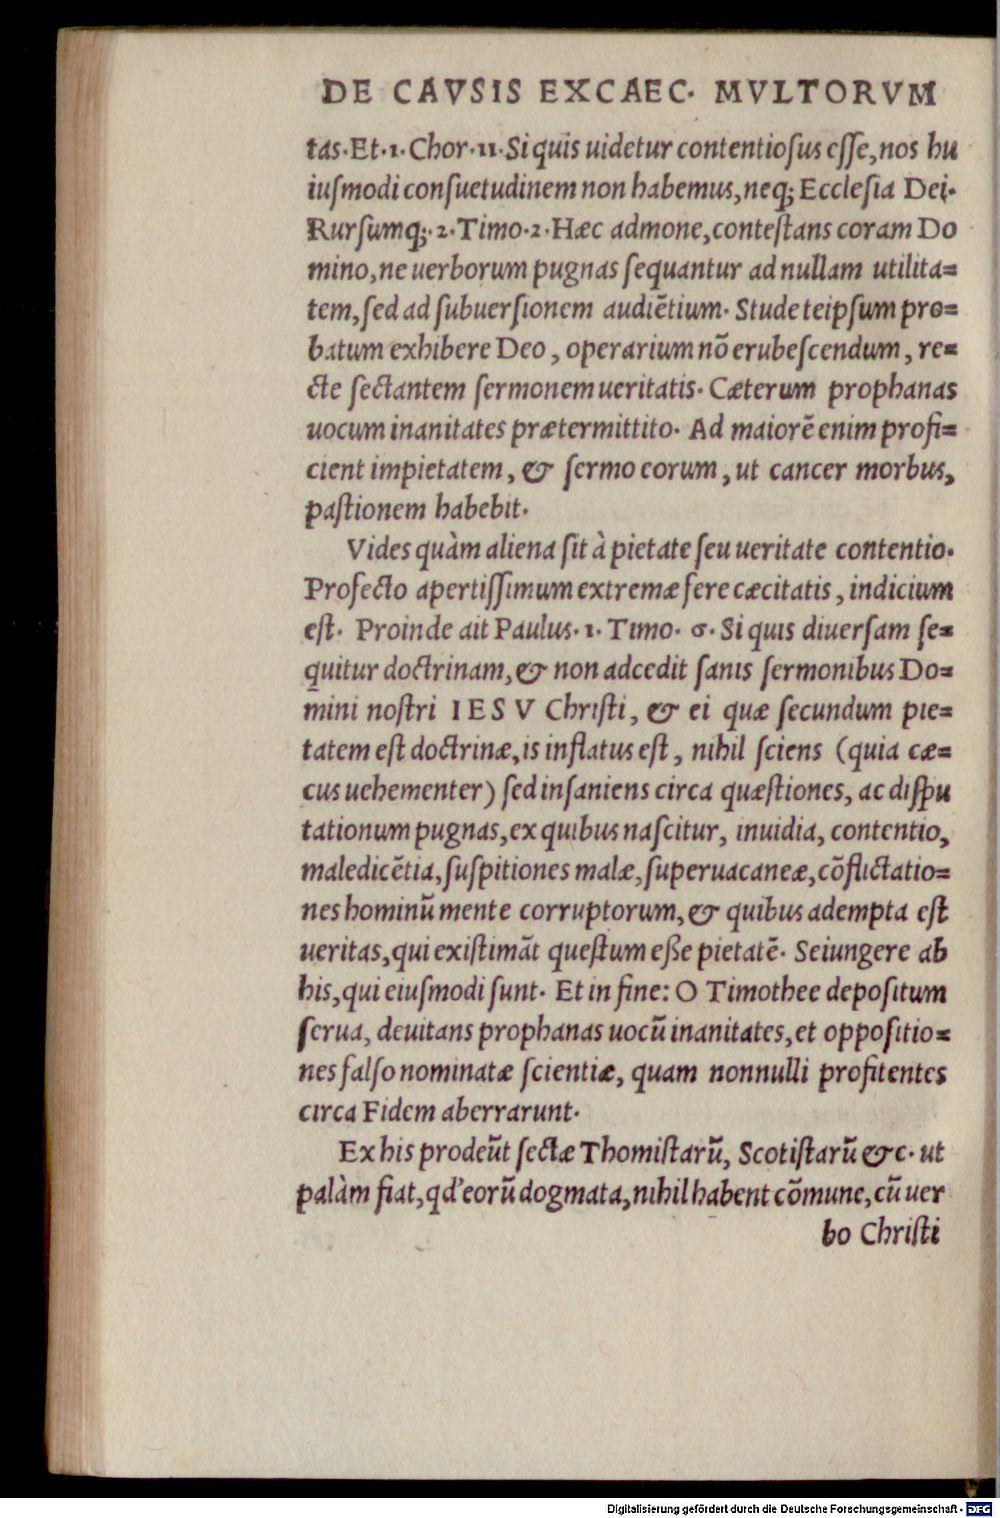 DE CAVSIS EXCAEC· MVLTORVM
tas·Et·1·Chor·11·Si quis uidetur contentiosus esse, nos hu
iusmodi consuetudinem non habemus, neq; Ecclesia Dei·
Rursumq;·2·Timo·2·Hæc admone, contestans coram Do
mino, ne uerborum pugnas sequantur ad nullam utilita=
tem, sed ad subuersionem audiẽtium· Stude teipsum pro=
batum exhibere Deo, operarium nõ erubescendum, re=
cte sectantem sermonem ueritatis· Cæterum prophanas
uocum inanitates prætermittito· Ad maiorẽ enim profi=
cient impietatem, & sermo eorum, ut cancer morbus,
pastionem habebit·
Vides quàm aliena sit à pietate seu ueritate contentio·
Profecto apertissimum extremæ fere cæcitatis, indicium
est· Proinde ait Paulus·1·Timo·6·Si quis diuersam se=
quitur doctrinam, & non adcedit sanis sermonibus Do=
mini nostri IESV Christi, & ei quæ secundum pie=
tatem est doctrinæ, is inflatus est, nihil sciens (quia cæ=
cus uehementer) sed insaniens circa quæstiones, ac dispu
tationum pugnas, ex quibus nascitur, inuidia, contentio,
maledicẽtia, suspitiones malæ, superuacaneæ, cõflictatio=
nes hominũ mente corruptorum, & quibus adempta est
ueritas, qui existimãt questum eße pietatẽ· Seiungere ab
his, qui eiusmodi sunt· Et in fine: O Timothee depositum
serua, deuitans prophanas uocũ inanitates, et oppositio=
nes falso nominatæ scientiæ, quam nonnulli profitentes
circa Fidem aberrarunt·
Ex his prodeũt sectæ Thomistarũ, Scotistarũ &c· ut
palàm fiat, qd' eorũ dogmata, nihil habent cõmune, cũ uer
bo Christi
Digitalisierung gefördert durch die Deutsche Forschungsgemeinschaft - DFG